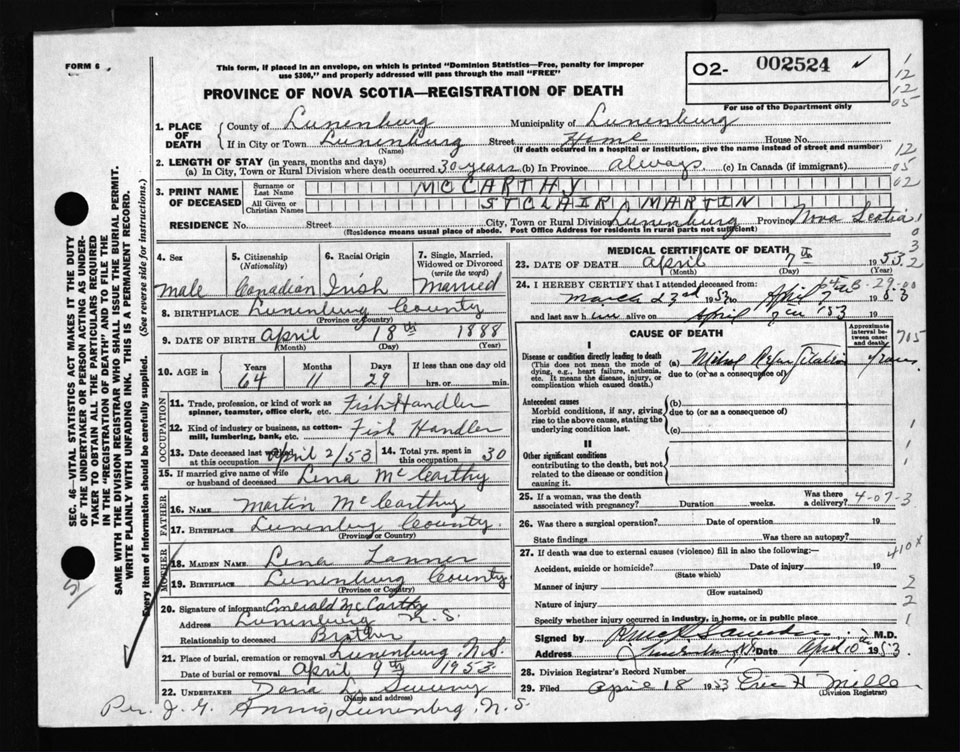 FORM 6
This form, if placed in an envelope, on which is printed "Dominion Statistics—Free, penalty for improper
use $300," and properly addressed will pass through the mail "FREE"
PROVINCE OF NOVA SCOTIA—REGISTRATION OF DEATH
O2- 002524
For use of the Department only
1
12
12
05
12
05
02
1. PLACE OF DEATH
County of Lunenburg Municipality of Lunenburg
If in City or Town Lunenburg Street Home House No.
(Name) (If death occurred in a hospital or institution, give the name instead of street and number)
2. LENGTH OF STAY (in years, months and days)
(a) In City, Town or Rural Division where death occurred 30 years (b) In Province always (c) In Canada (if immigrant)
3. PRINT NAME OF DECEASED
Surname or Last Name MCCARTHY
All Given or Christian Names STCLAIR MARTIN
RESIDENCE No. Street City, Town or Rural Division Lunenburg Province Nova Scotia
(Residence means usual place of abode. Post Office Address for residents in rural parts not sufficient)
4. Sex
male
5. Citizenship
(Nationality)
Canadian
6. Racial Origin
Irish
7. Single, Married,
Widowed or Divorced
(write the word)
Married
8. BIRTHPLACE Lunenburg County
(Province or Country)
9. DATE OF BIRTH April 18th 1888
(Month) (Day) (Year)
10. AGE in
Years Months Days If less than one day old
64 11 29 hrs. or min.
OCCUPATION
11. Trade, profession, or kind of work as
spinner, teamster, office clerk, etc. Fish Handler
12. Kind of industry or business, as cotton-
mill, lumbering, bank, etc. Fish Handler
13. Date deceased last worked
at this occupation April 2/53
14. Total yrs. spent in
this occupation 30
15. If married give name of wife
or husband of deceased Lena McCarthy
FATHER
16. NAME Martin McCarthy
17. BIRTHPLACE Lunenburg County
(Province or Country)
MOTHER
18. MAIDEN NAME Lena
19. BIRTHPLACE Lunenburg County
(Province or Country)
20. Signature of informant Emerald McCarthy
Address Lunenburg N.S.
Relationship to deceased Brother
21. Place of burial, cremation or removal Lunenburg N.S.
Date of burial or removal April 9th 1953
22. UNDERTAKER Dana L. Sweeny
(Name and address)
Per. J. G. Lunenburg, N.S.
MEDICAL CERTIFICATE OF DEATH
23. DATE OF DEATH April 7th 1953
(Month) (Day) (Year)
24. I HEREBY CERTIFY that I attended deceased from:
March 23rd 1953 to April 7 1953
and last saw him alive on April 7th '53
CAUSE OF DEATH
Approximate
interval between
onset
and death
I
Disease or condition directly leading to death
(This does not mean the mode of
dying, e.g., heart failure, asthenia,
etc. It means the disease, injury, or
complication which caused death.)
(a)
due to (or as a consequence of)
Antecedent causes
Morbid conditions, if any, giving
rise to the above cause, stating the
underlying condition last.
(b)
due to (or as a consequence of)
(c)
II
Other significant conditions
contributing to the death, but not
related to the disease or condition
causing it.
25. If a woman, was the death
associated with pregnancy? Duration weeks. Was there
a delivery?
4-07-3
26. Was there a surgical operation? Date of operation 19
State findings Was there an autopsy?
27. If death was due to external causes (violence) fill in also the following:
Accident, suicide or homicide? Date of injury 19
(State which)
Manner of injury
(How sustained)
Nature of injury
Specify whether injury occurred in industry, in home, or in public place
Signed by M.D.
Address Lunenburg Date April 10 1953
28. Division Registrar's Record Number
29. Filed April 18 1953
(Division Registrar)
SEC. 46—VITAL STATISTICS ACT MAKES IT THE DUTY
OF THE UNDERTAKER OR PERSON ACTING AS UNDER-
TAKER TO OBTAIN ALL THE PARTICULARS REQUIRED
IN THE "REGISTRATION OF DEATH" AND TO FILE THE
SAME WITH THE DIVISION REGISTRAR WHO SHALL ISSUE THE BURIAL PERMIT.
WRITE PLAINLY WITH UNFADING INK. THIS IS A PERMANENT RECORD.
Every item of information should be carefully supplied. (See reverse side for instructions.)